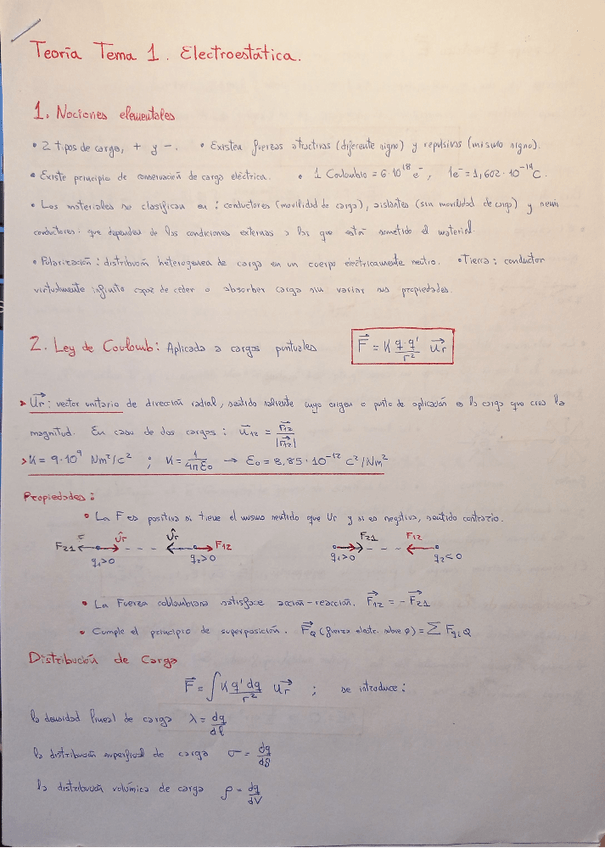 Teoría Tema 1. Electroestática.
1. Nociones elementales
• 2 tipos de carga, + y -. • Existen fuerzas atractivas (diferente signo) y repulsivas (mismo signo).
• Existe principio de conservación de carga eléctrica. • 1 Couloumbio = 6·10¹⁸ e⁻, 1e⁻ = 1,602·10⁻¹⁹ C.
• Los materiales se clasifican en: conductores (movilidad de carga), aislantes (sin movilidad de carga) y semi
conductores: que dependen de las condiciones externas a las que está sometido el material.
• Polarización: distribución heterogenea de carga en un cuerpo electricamente neutro. • Tierra: conductor
virtualmente infinito capaz de ceder o absorber carga sin variar sus propiedades.
2. Ley de Couloumb: Aplicada a cargas puntuales F⃗ = K q·q'/r² u⃗r
> U⃗r: vector unitario de dirección radial, sentido saliente cuyo origen o punto de aplicación es la carga que crea la
magnitud. En caso de dos cargas: u⃗₁₂ = r⃗₁₂/|r⃗₁₂|
> K = 9·10⁹ Nm²/c² ; K = 1/4πε₀ → ε₀ = 8,85·10⁻¹² C²/Nm²
Propiedades:
• La F es positiva si tiene el mismo sentido que Ur y si es negativa, sentido contrario.
F₂₁ Ûr Ûr F₁₂ F₂₁ F₁₂
q₁>0 q₂>0 q₁>0 q₂<0
• La Fuerza coulombiana satisface acción-reacción. F⃗₁₂ = -F⃗₂₁
• Cumple el principio de superposición. F⃗Q (fuerza electr. sobre Q) = ∑ Fqᵢ Q
Distribución de Carga
F⃗ = ∫ K q' dq/r² u⃗r ; se introduce:
la densidad lineal de carga λ = dq/dl
la distribución superficial de carga σ = dq/dS
la distribución volúmica de carga ρ = dq/dV